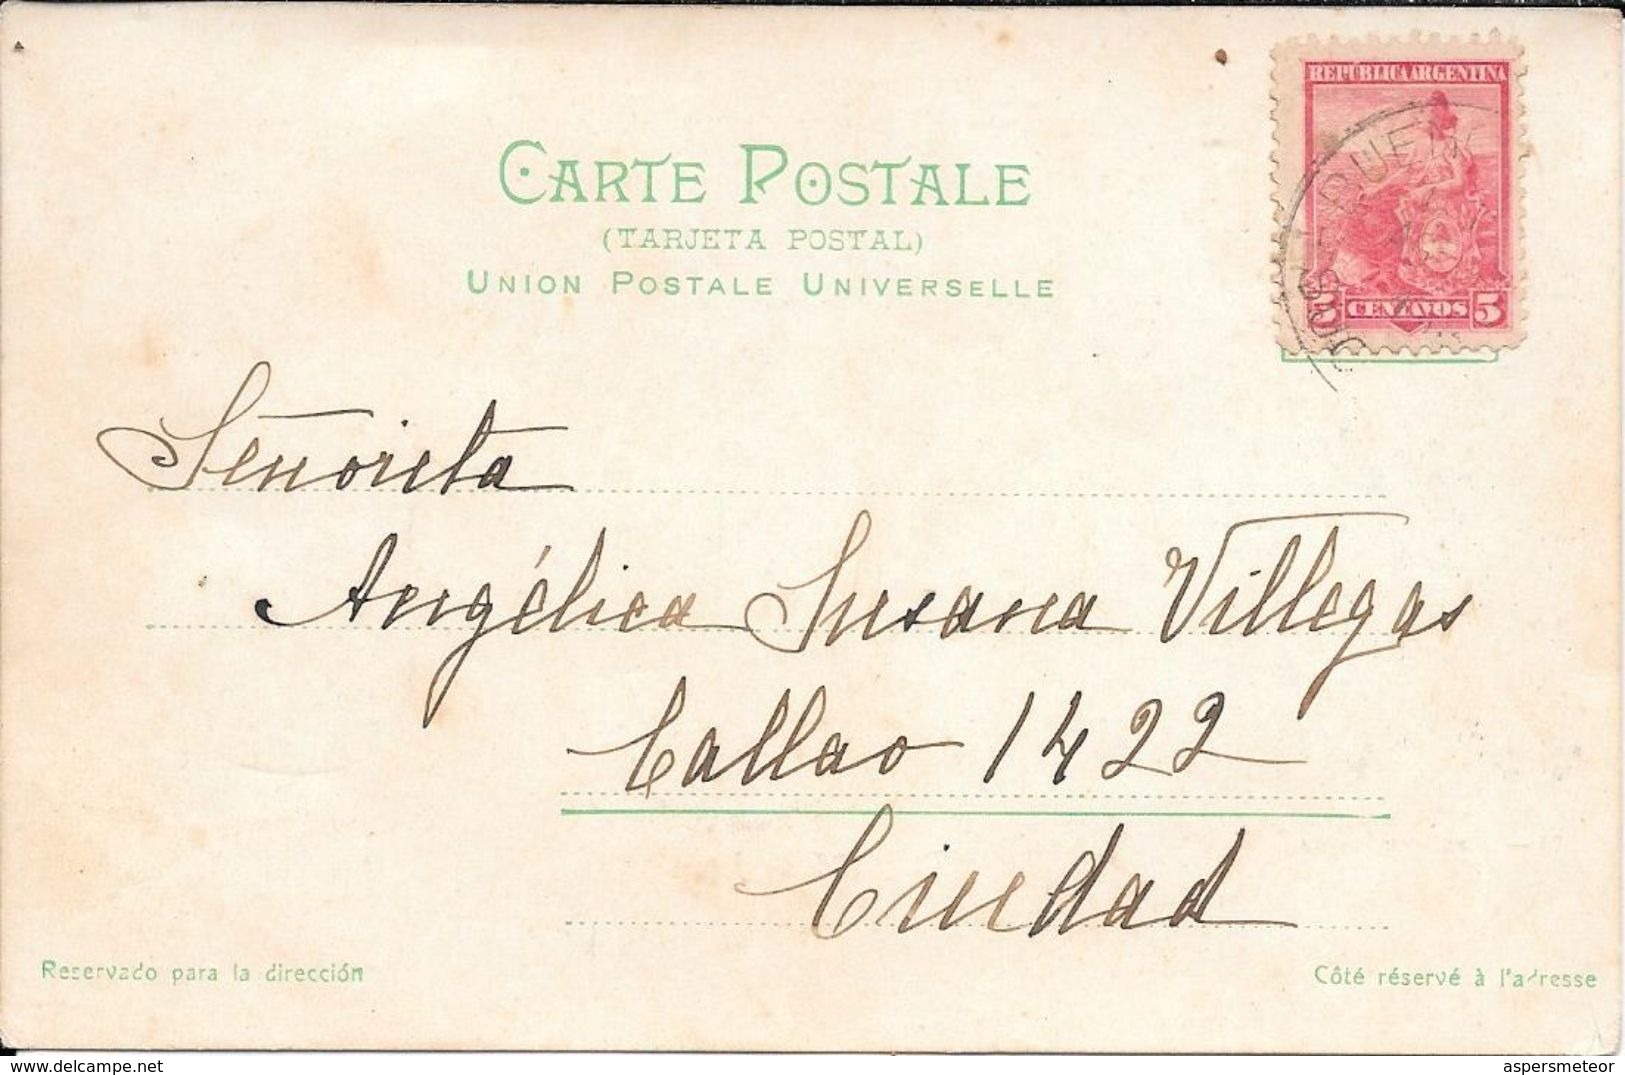 REPÚBLICA ARGENTINA
CARTE POSTALE
(TARJETA POSTAL)
UNION POSTALE UNIVERSELLE
5 CENTAVOS 5
Señorita
Angélica Susana Villegas
Callao 1422
Ciudad
Reservado para la dirección
Côté réservé à l'adresse
www.delcampe.net
aspersmeteor